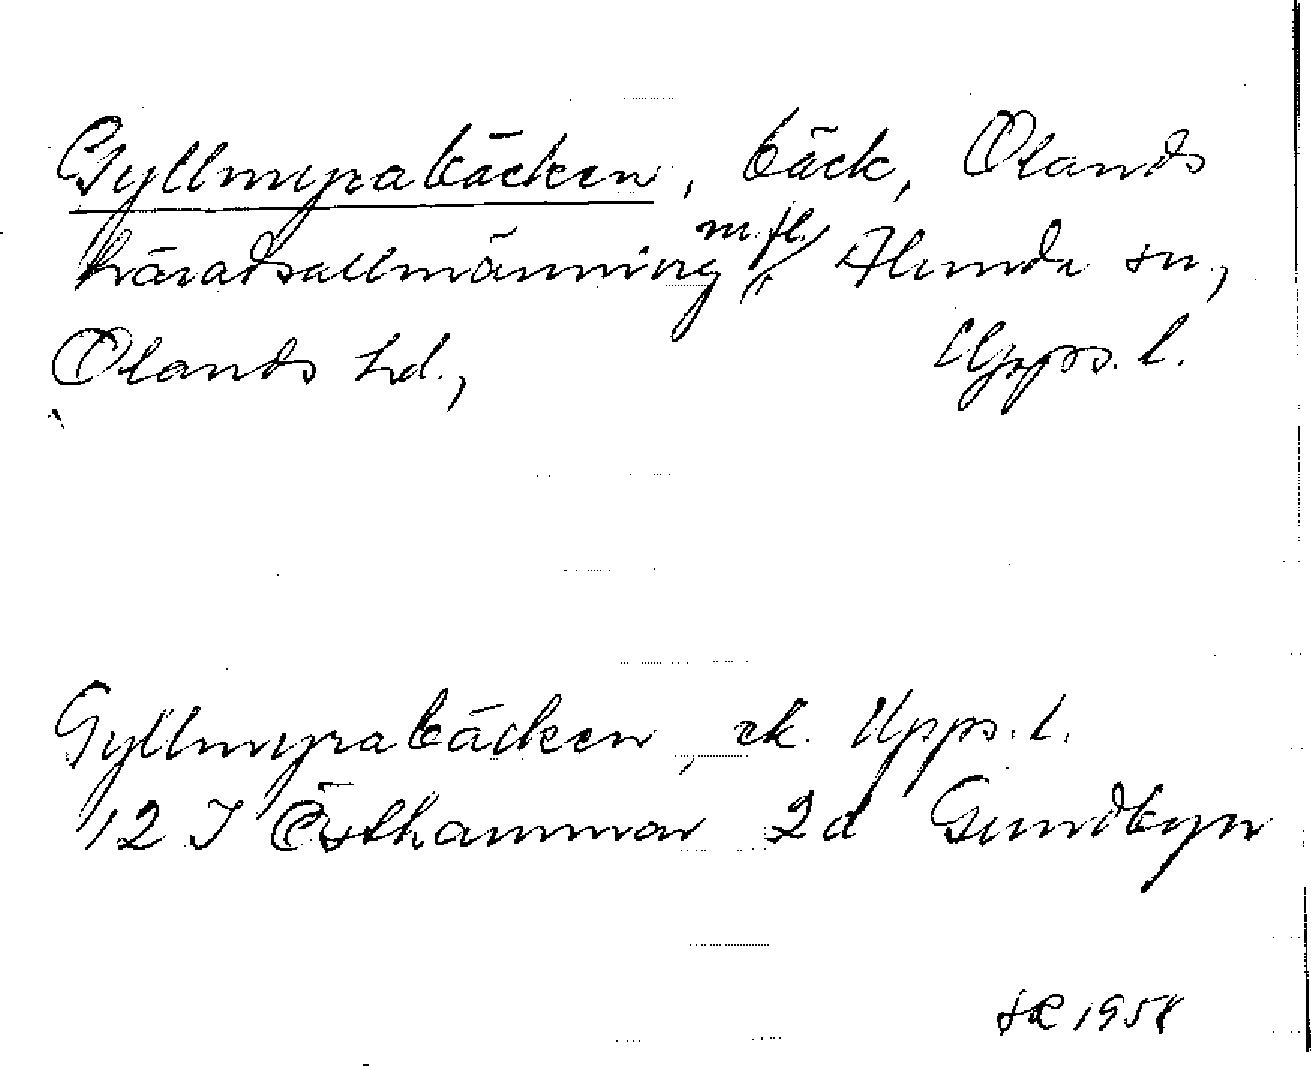 Gyllmyrabäcken, bäck, Olands
häradsallmänning m.fl., Alunda sn,
Olands hd., Upps. l.
Gyllmyrabäcken, ek. Upps. l.
12 I Östhammar 2d Gundbyn
1958